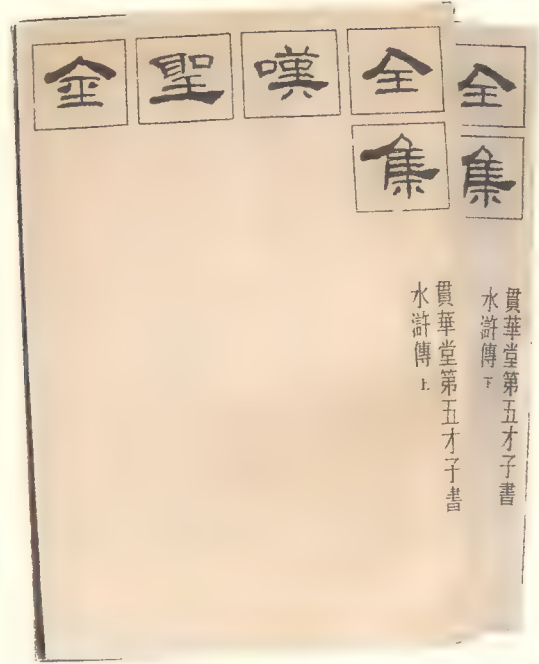 金聖嘆全
集
貫華堂第五才子書
水滸傳 上
全
集
貫華堂第五才子書
水滸傳 下